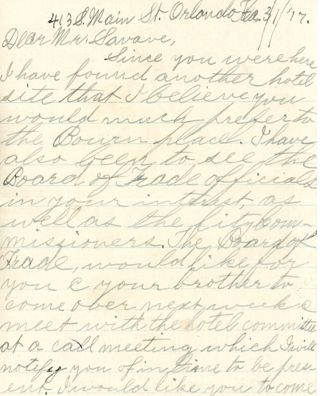 413 S. Main St. Orlando Fla. 3/1/'17.
Dear Mr. Savave,
Since you were here
I have found another hotel
site that I believe you
would much prefer to
the Bourn place. I have
also been to see the
Board of Trade officials
in your interest as
well as the Com-
missioners. The Board of
Trade, would like for
you & your brother to
come over next week &
meet with the hotel committee
at a call meeting which I will
notify you of in time to be pres-
ent. I would like you to come